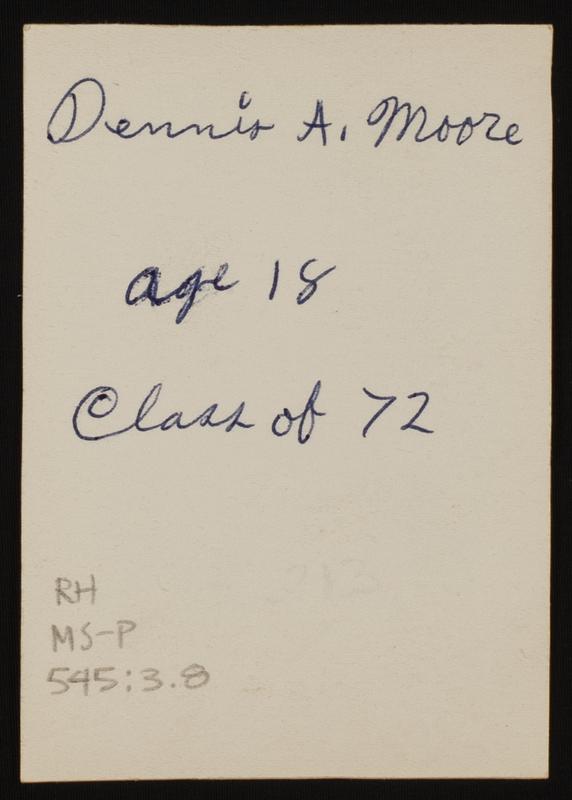 Dennis A. Moore
age 18
Class of 72
RH
MS-P
545:3.8